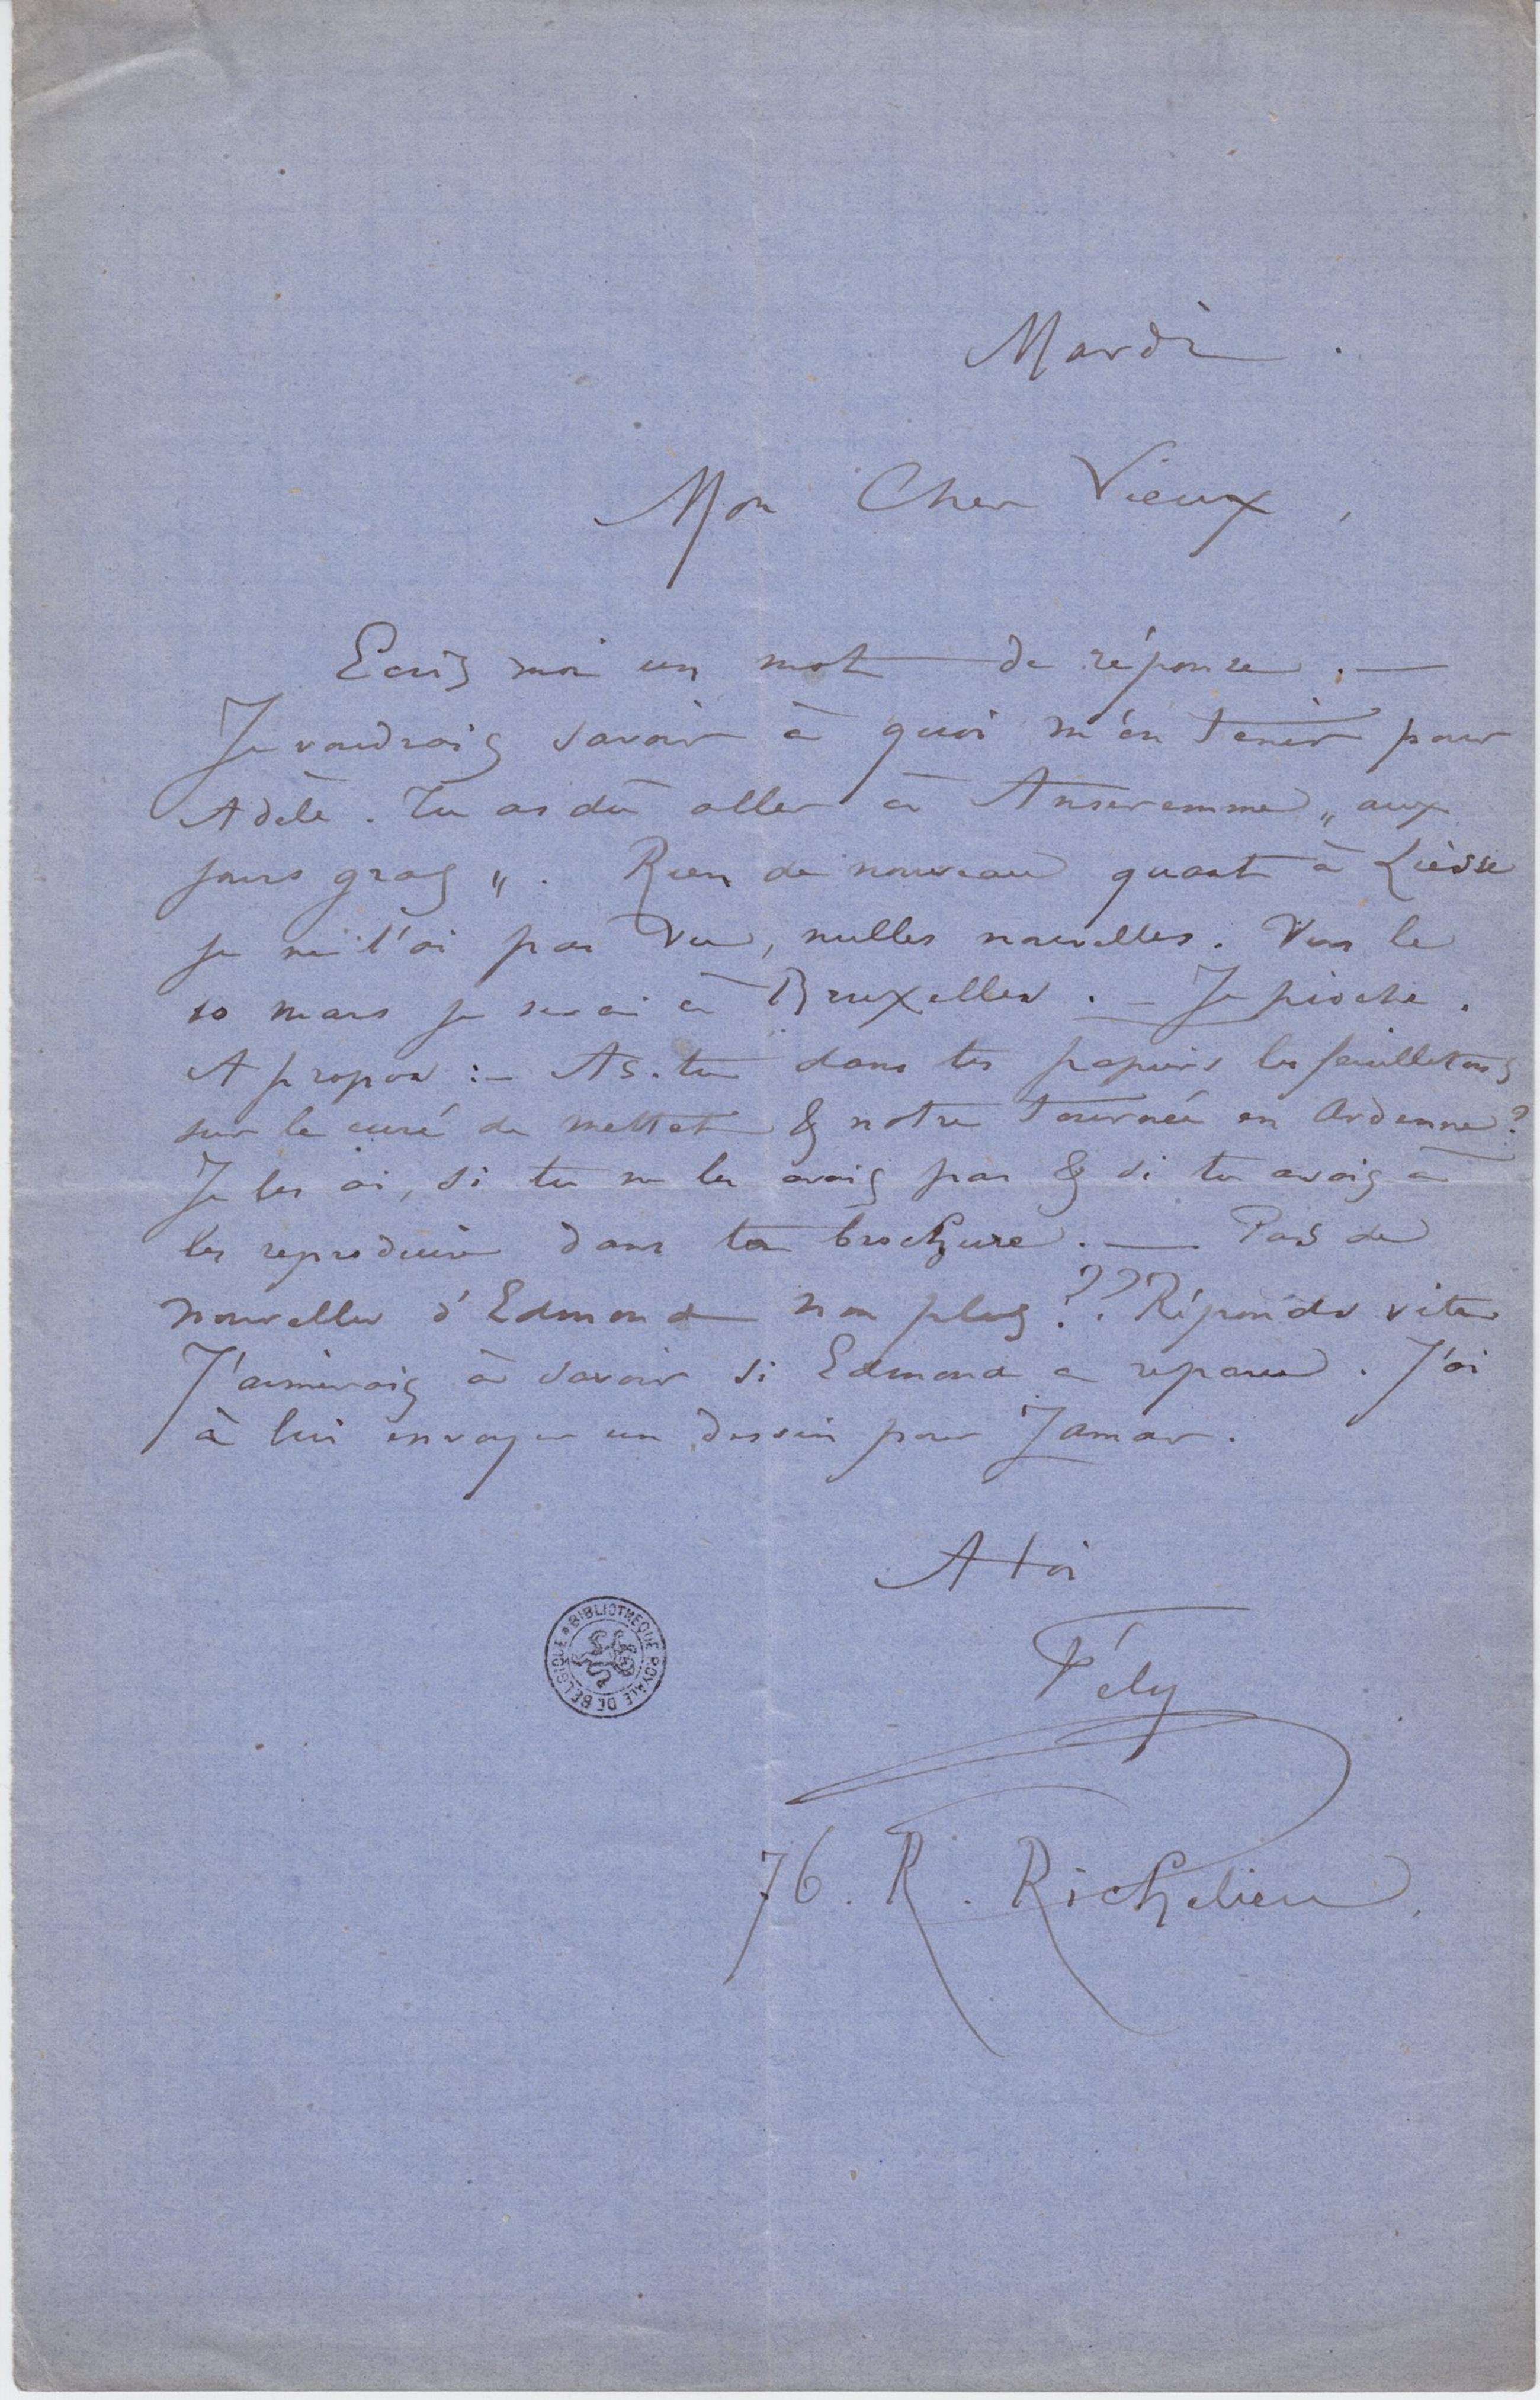 Mardi.
Mon Cher Vieux,
Ecris moi un mot de réponse. —
Je voudrais savoir à quoi m'en tenir pour
Adèle. Tu as dû aller à Anseremme „ aux
jours gras „. Rien de nouveau quant à Liesse
je ne l'ai pas vu, nulles nouvelles. Vers le
10 mars je serai à Bruxelles. — Je pioche.
A propos :— As-tu dans tes papiers les feuilletons
sur le curé de Mettet & notre tournée en Ardenne?
Je les ai, si tu ne les avais pas & si tu avais à
les reproduire dans ta brochure. — Pas de
nouvelles d'Edmond non plus??? Réponds vite
J'aimerais à savoir si Edmond a reparu. J'ai
à lui envoyer un dessin pour Jamar.
A toi
Fély
76. R. Richelieu.
BIBLIOTHEQUE ROYALE DE BELGIQUE